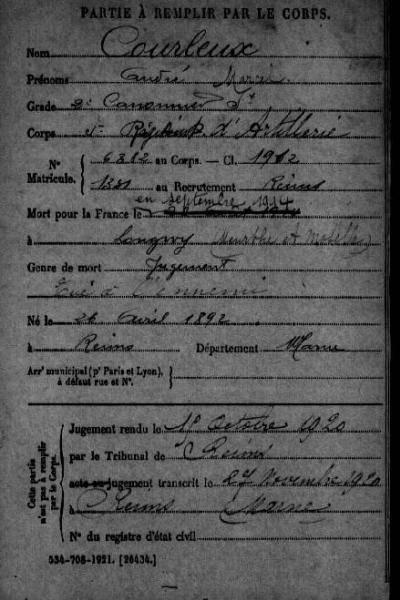 PARTIE À REMPLIR PAR LE CORPS.
Nom Courleux
Prénoms André Marcel
Grade 2e Canonnier St
Corps Régiment d'Artillerie
N° 6812 au Corps. — Cl. 1912
Matricule. 1381 au Recrutement Reims
en septembre 1914
Mort pour la France le
à Longwy (Meurthe et Moselle)
Genre de mort Jugement
Tué à l'ennemi
Né le 26 avril 1892
à Reims Département Marne
Arrt municipal (pr Paris et Lyon), à défaut rue et N°.
Cette partie n'est pas à remplir par le Corps.
Jugement rendu le 1er Octobre 1920
par le Tribunal de Reims
acte ou jugement transcrit le Novembre 1920
à Reims Marne
N° du registre d'état civil
534-708-1921. [26434.]